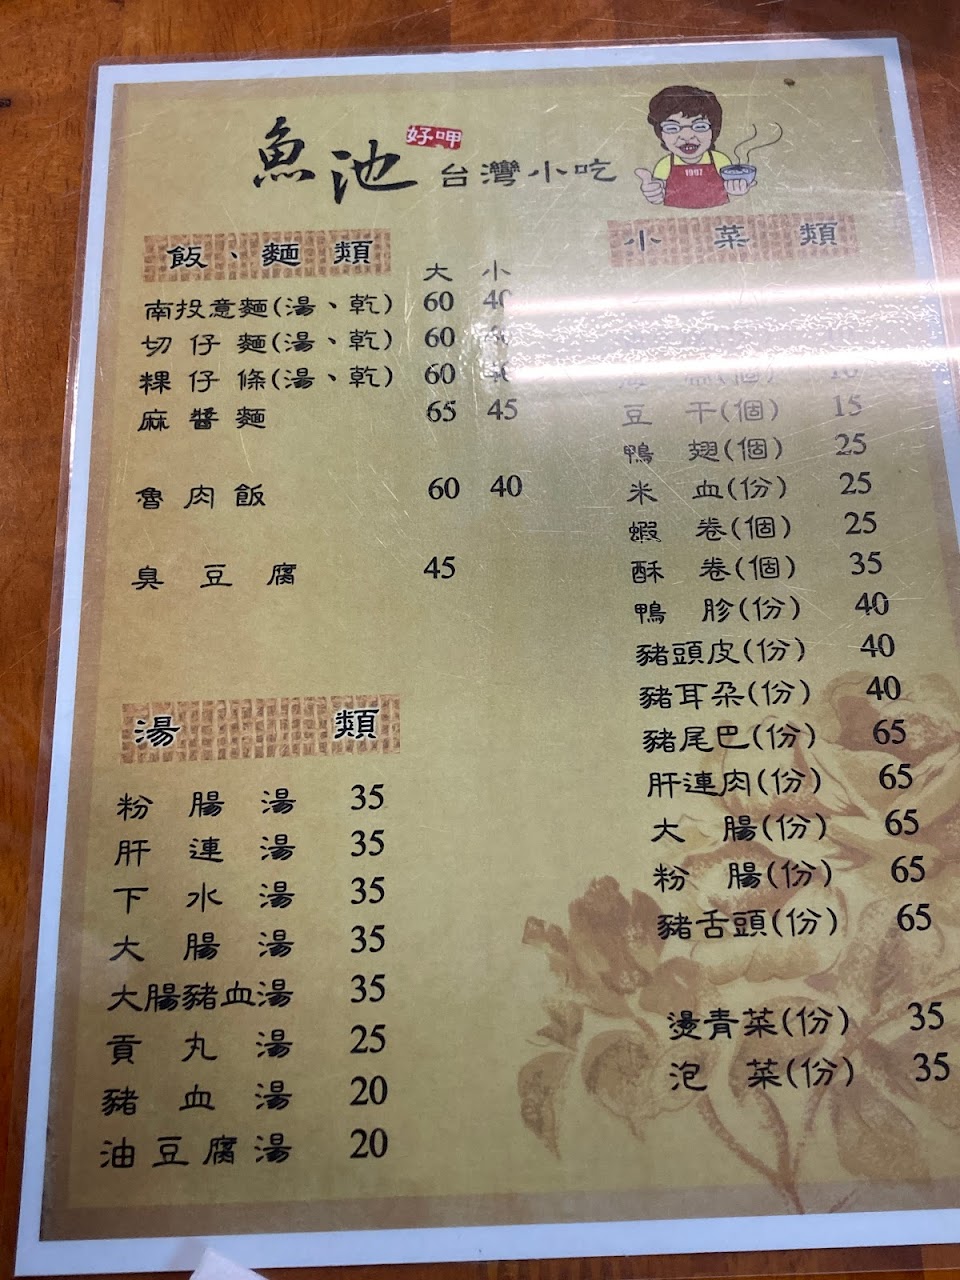 魚池 好呷 台灣小吃
1997
飯、麵類
大 小
南投意麵(湯、乾) 60 40
切仔麵(湯、乾) 60 40
粿仔條(湯、乾) 60 40
麻醬麵 65 45
魯肉飯 60 40
臭豆腐 45
湯類
粉腸湯 35
肝連湯 35
下水湯 35
大腸湯 35
大腸豬血湯 35
貢丸湯 25
豬血湯 20
油豆腐湯 20
小菜類
(個) 10
豆干(個) 15
鴨翅(個) 25
米血(份) 25
蝦卷(個) 25
酥卷(個) 35
鴨胗(份) 40
豬頭皮(份) 40
豬耳朵(份) 40
豬尾巴(份) 65
肝連肉(份) 65
大腸(份) 65
粉腸(份) 65
豬舌頭(份) 65
燙青菜(份) 35
泡菜(份) 35